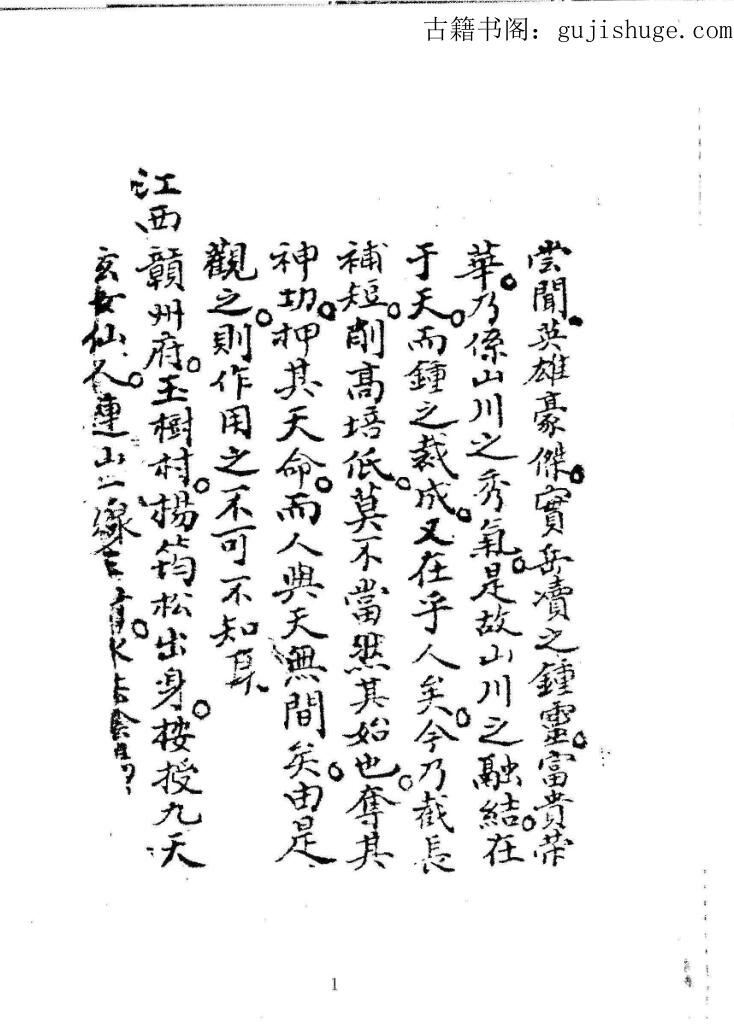 古籍书阁：gujishuge.com
尝聞。英雄豪傑。實岳瀆之鍾靈。富貴荣
華。乃係山川之秀氣。是故山川之融結。在
于天。而鍾之裁成。又在乎人矣。今乃截長
補短。削高培低。莫不當然其始也。奪其
神功。押其天命。而人與天無間矣。由是
觀之。則作用之不可不知耳
江西贛州府。玉樹村。楊筠松出身。按授九天
玄女仙人。連山
1